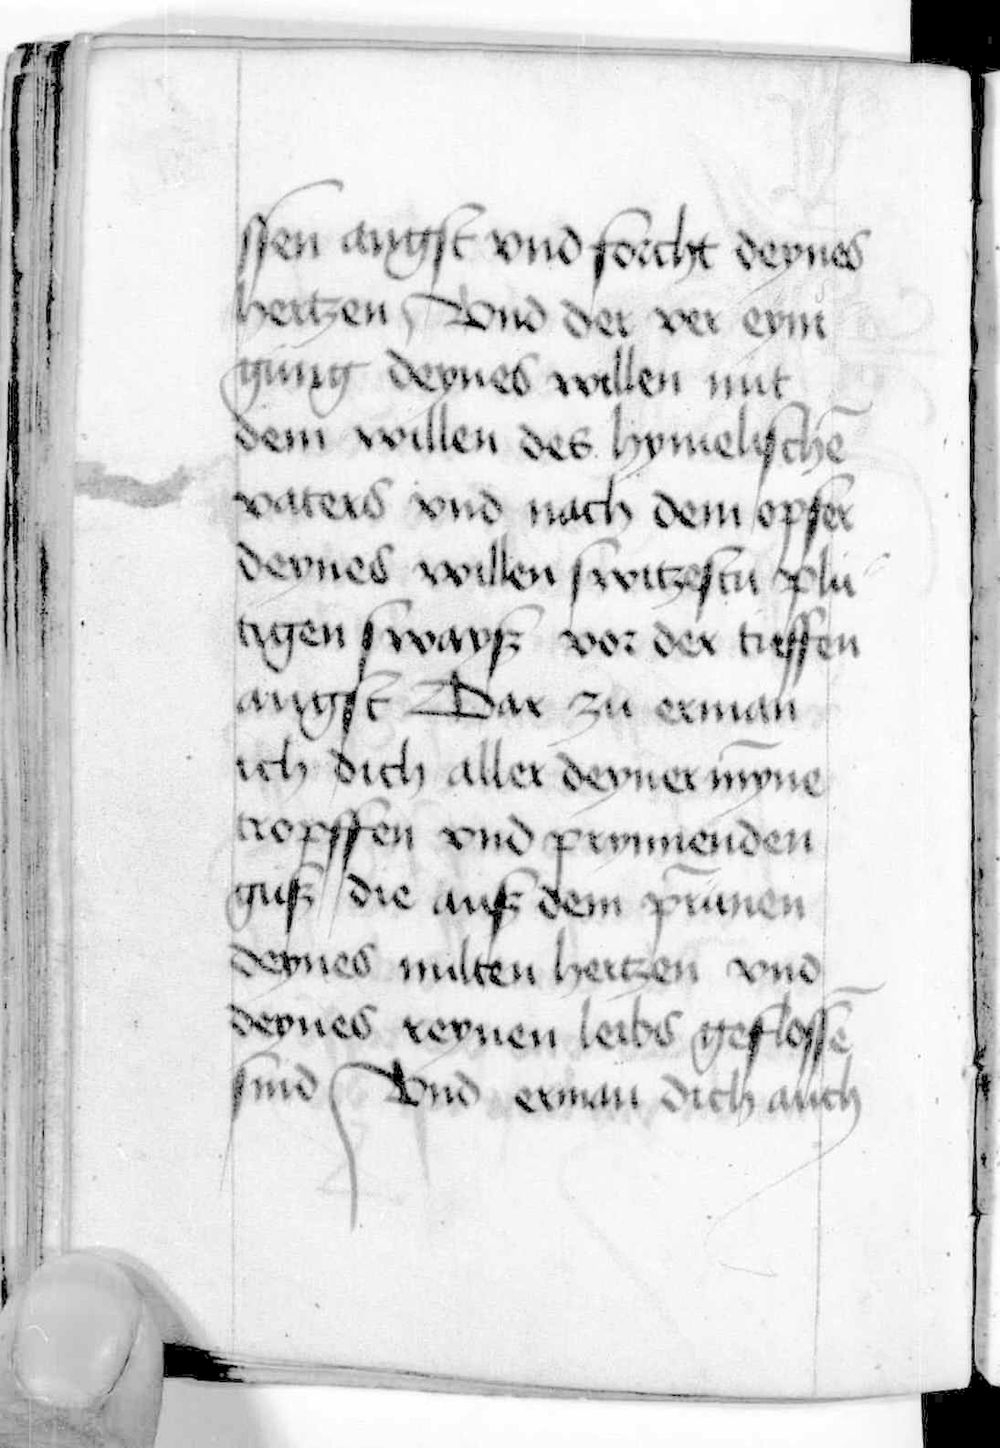 ssen angst vnd forcht deynes
hertzen Vnd der ver eyni
gung deynes willen mit
dem willen des hymelischē
vaters vnd nach dem opfer
deynes willen switzestu plu
tigen swayß vor der tieffen
angst Dar zu erman
ich dich aller deyner īnyne
tropffen vnd prynnenden
guß die auß dem prūnen
deynes milten hertzen vnd
deynes reynen leibs geflossē
sind Vnd erman dich auch